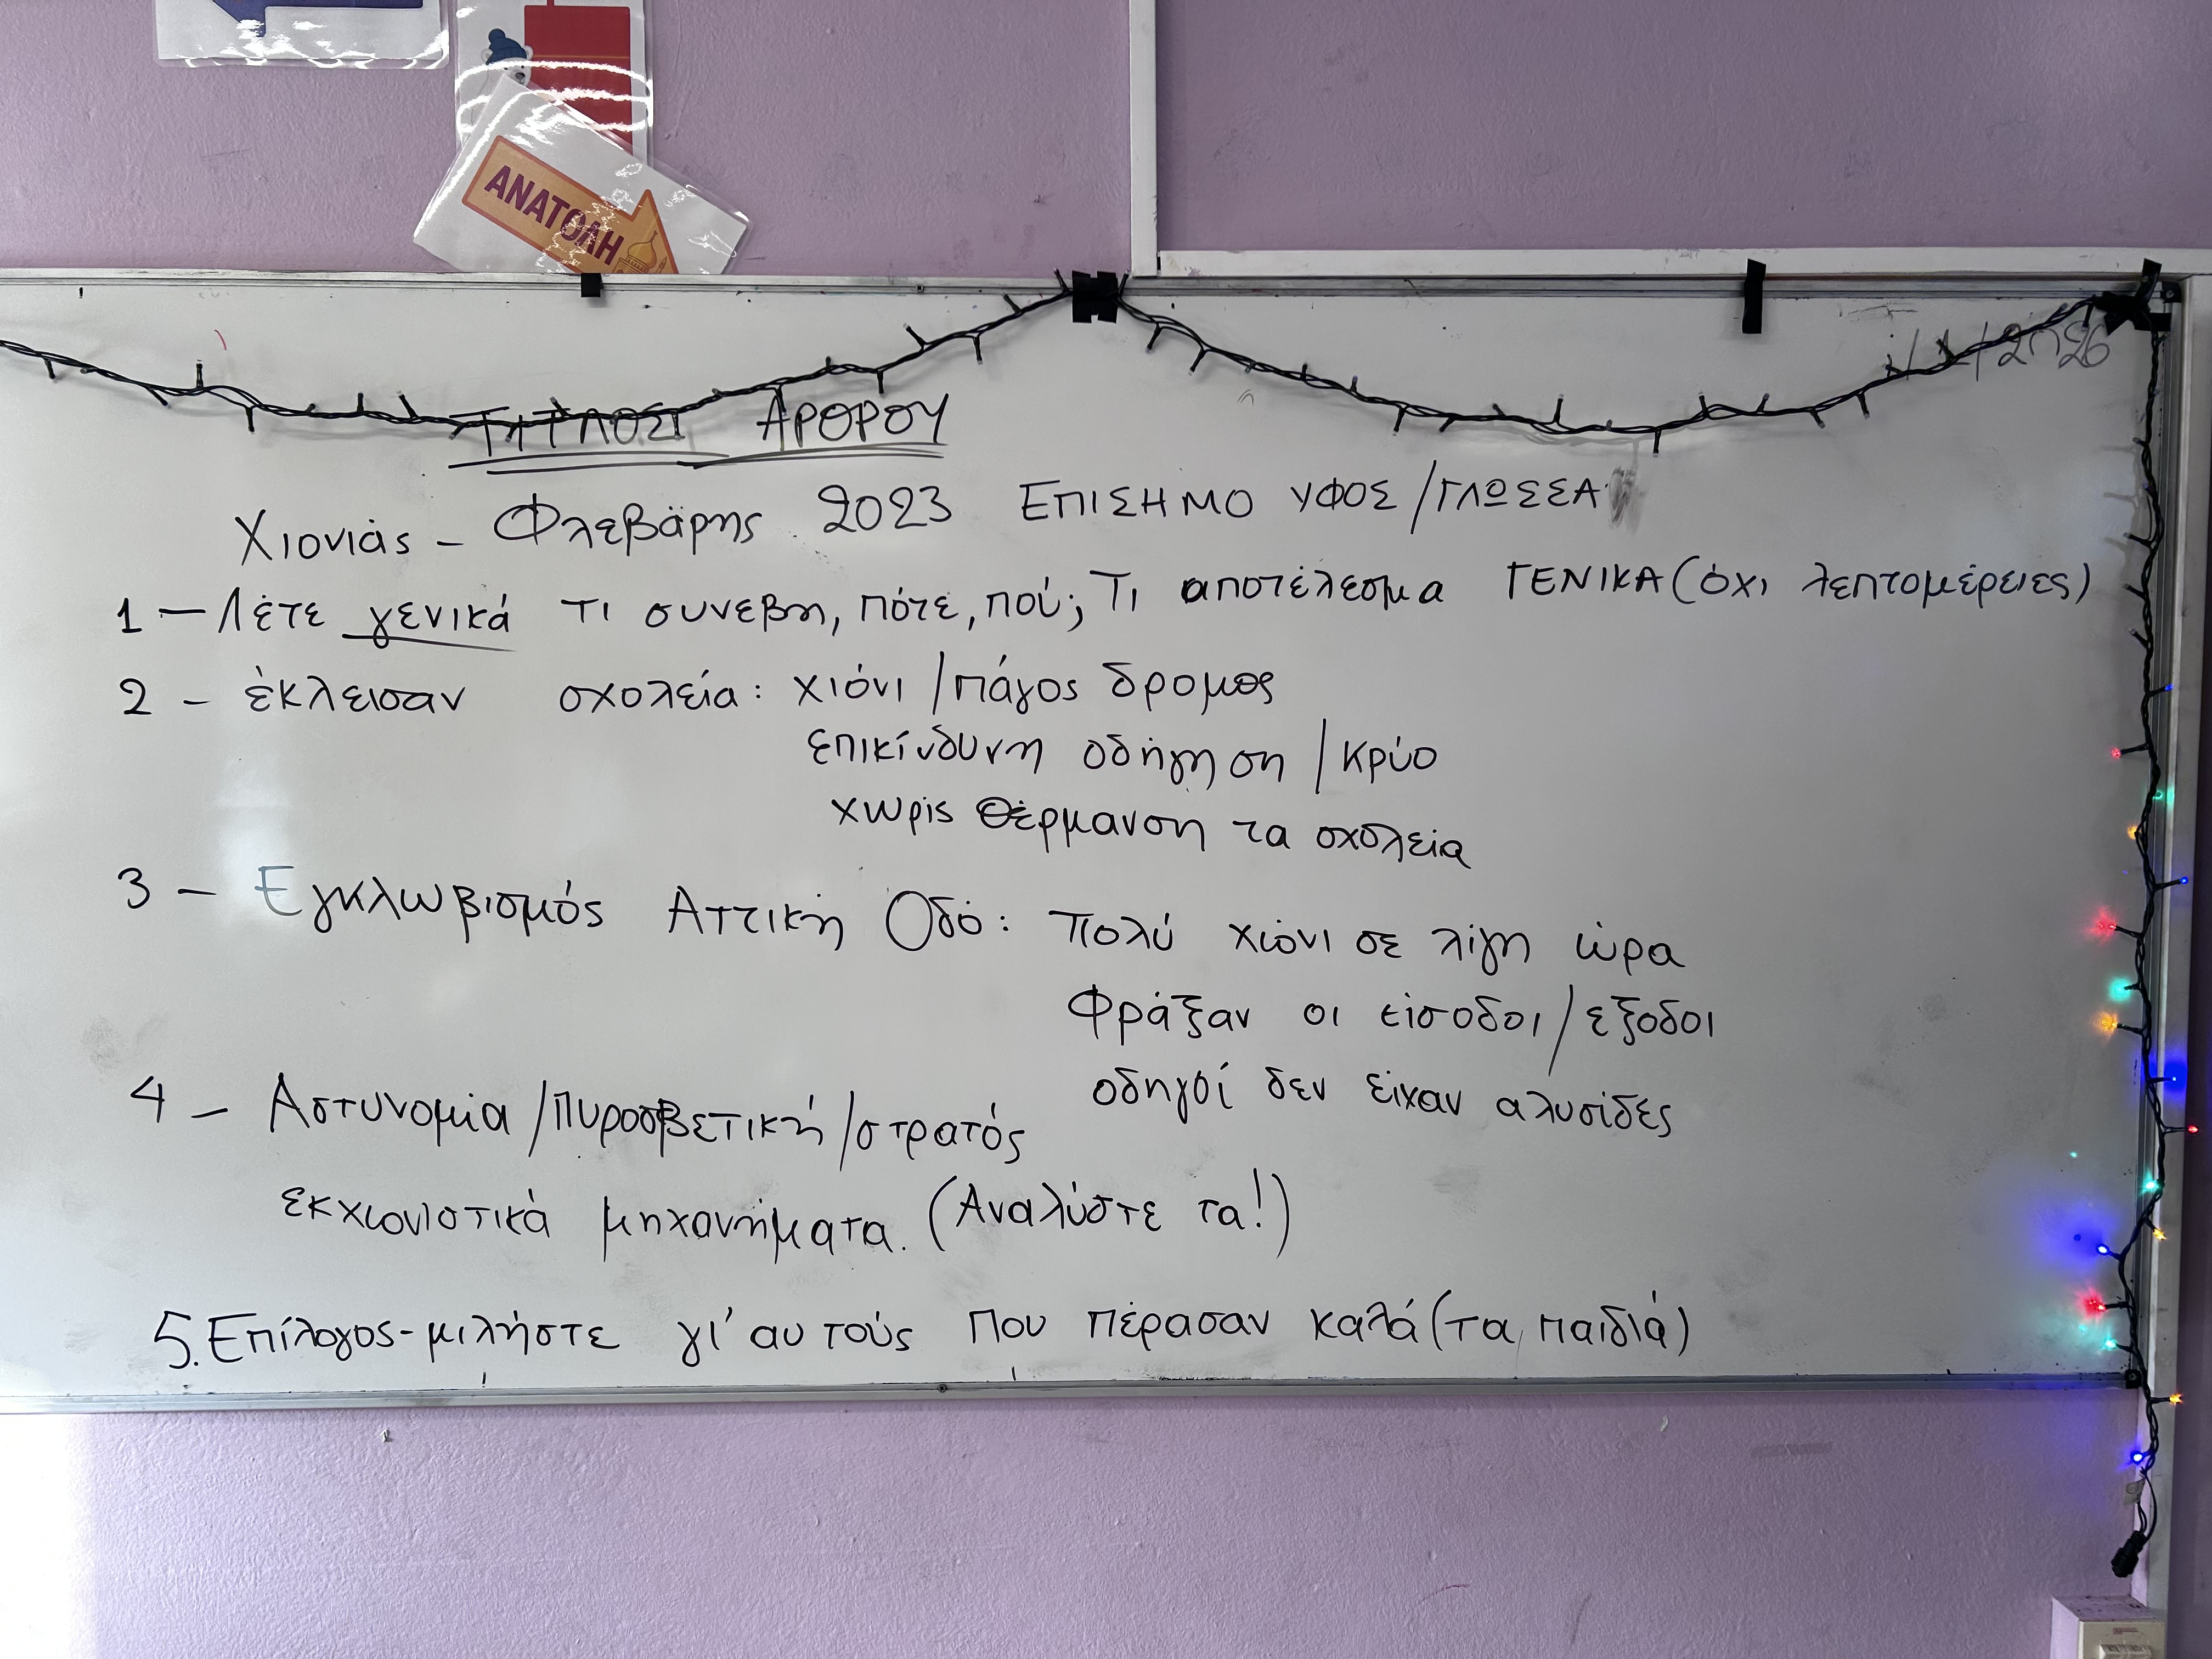 ΑΝΑΤΟΛΗ
/1/2026
ΤΙΤΛΟΣ ΑΡΘΡΟΥ
Χιονιάς - Φλεβάρης 2023 ΕΠΙΣΗΜΟ ΥΦΟΣ/ΓΛΩΣΣΑ
1 - Λέτε γενικά τι συνέβη, πότε, πού; Τι αποτέλεσμα ΓΕΝΙΚΑ (όχι λεπτομέρειες)
2 - έκλεισαν σχολεία: χιόνι / πάγος δρομος
επικίνδυνη οδήγηση / κρύο
χωρίς θέρμανση τα σχολεία
3 - Εγκλωβισμός Αττική Οδό: Πολύ χιόνι σε λίγη ώρα
Φράξαν οι είσοδοι/έξοδοι
οδηγοί δεν είχαν αλυσίδες
4 - Αστυνομία / Πυροσβετική / στρατός
εκχιονιστικά μηχανήματα. (Αναλύστε τα!)
5. Επίλογος - μιλήστε γι' αυτούς που πέρασαν καλά (τα παιδιά)